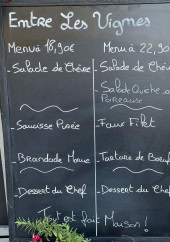 Entre Les Vignes
Menu à 18,90€
Menu à 22,90
- Salade de Chèvre
- Salade de Chèv
- Salade Quiche
- Saucisse Purée
- Faux Filet
- Brandade Morue
- Tartare de Boeuf
- Dessert du Chef
- Dessert du Chef
Tout est fait Maison!